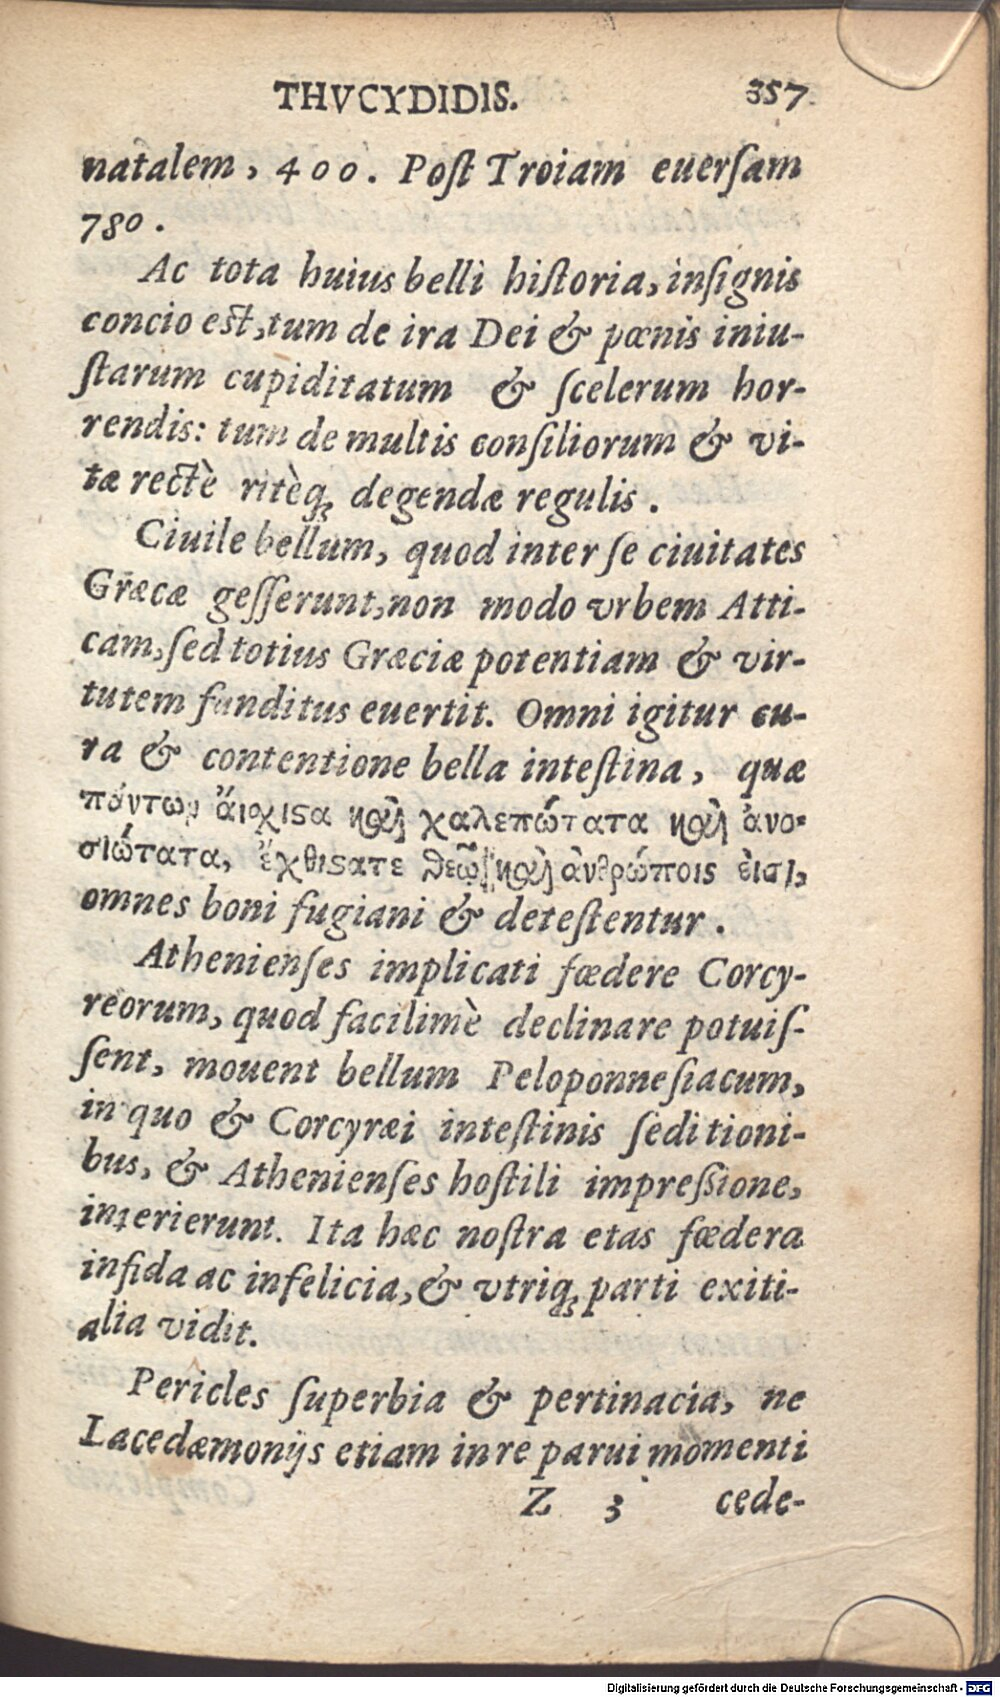 THVCYDIDIS. 357
natalem, 400. Post Troiam euersam
780.
Ac tota huius belli historia, insignis
concio est, tum de ira Dei & pœnis iniu-
starum cupiditatum & scelerum hor-
rendis: tum de multis consiliorum & vi-
tæ rectè ritèq; degendæ regulis.
Ciuile bellum, quod inter se ciuitates
Græcæ gesserunt, non modo vrbem Atti-
cam, sed totius Græciæ potentiam & vir-
tutem funditus euertit. Omni igitur cu-
ra & contentione bella intestina, quæ
πάντων ἄιχιϛα καὶ χαλεπώτατα καὶ ἀνο-
σιώτατα, ἔχθιϛα τε θεῷ καὶ ἀνθρώποις ἐισὶ,
omnes boni fugiani & detestentur.
Athenienses implicati fœdere Corcy-
reorum, quod facilimè declinare potuis-
sent, mouent bellum Peloponnesiacum,
in quo & Corcyræi intestinis seditioni-
bus, & Athenienses hostili impressione,
interierunt. Ita hæc nostra etas fœdera
infida ac infelicia, & vtriq; parti exiti-
alia vidit.
Pericles superbia & pertinacia, ne
Lacedæmonijs etiam in re parui momenti
Z 3 cede-
Digitalisierung gefördert durch die Deutsche Forschungsgemeinschaft - DFG